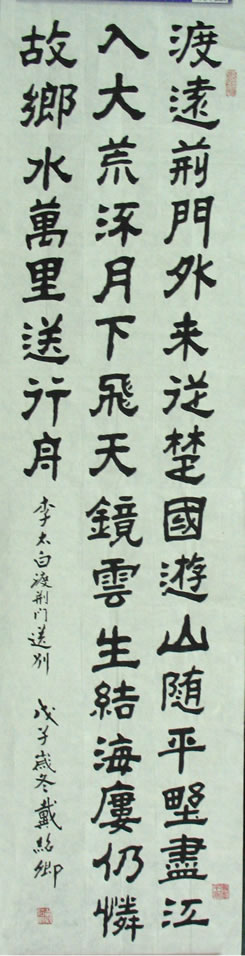 渡遠荆門外来従楚國遊山随平野盡江
入大荒流月下飛天鏡雲生結海廔仍憐
故鄉水萬里送行舟
李太白渡荆门送别 戊子歲冬戴紹卿